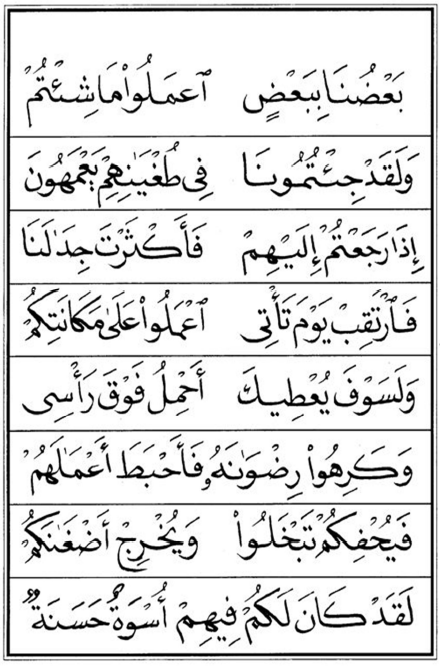 بَعْضُنَا بِبَعْضٍ ٱعمَلُوا۟ مَا شِئْتُمْ
وَلَقَدْ جِئْتُمُونَا فِى طُغْيَٰنِهِمْ يَعْمَهُونَ
إِذَا رَجَعْتُمْ إِلَيْهِمْ فَأَكْثَرْتَ جِدَٰلَنَا
فَٱرْتَقِبْ يَوْمَ تَأْتِى ٱعْمَلُوا۟ عَلَىٰ مَكَانَتِكُمْ
وَلَسَوْفَ يُعْطِيكَ أَحْمِلُ فَوْقَ رَأْسِى
وَكَرِهُوا۟ رِضْوَٰنَهُۥ فَأَحْبَطَ أَعْمَٰلَهُمْ
فَيُحْفِكُمْ تَبْخَلُوا۟ وَيُخْرِجْ أَضْغَٰنَكُمْ
لَقَدْ كَانَ لَكُمْ فِيهِمْ أُسْوَةٌ حَسَنَةٌ